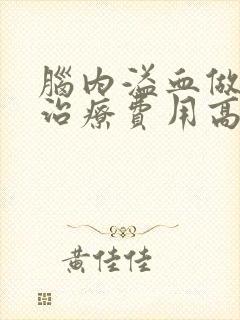 腦內溢血做
治療費用高
黃佳佳